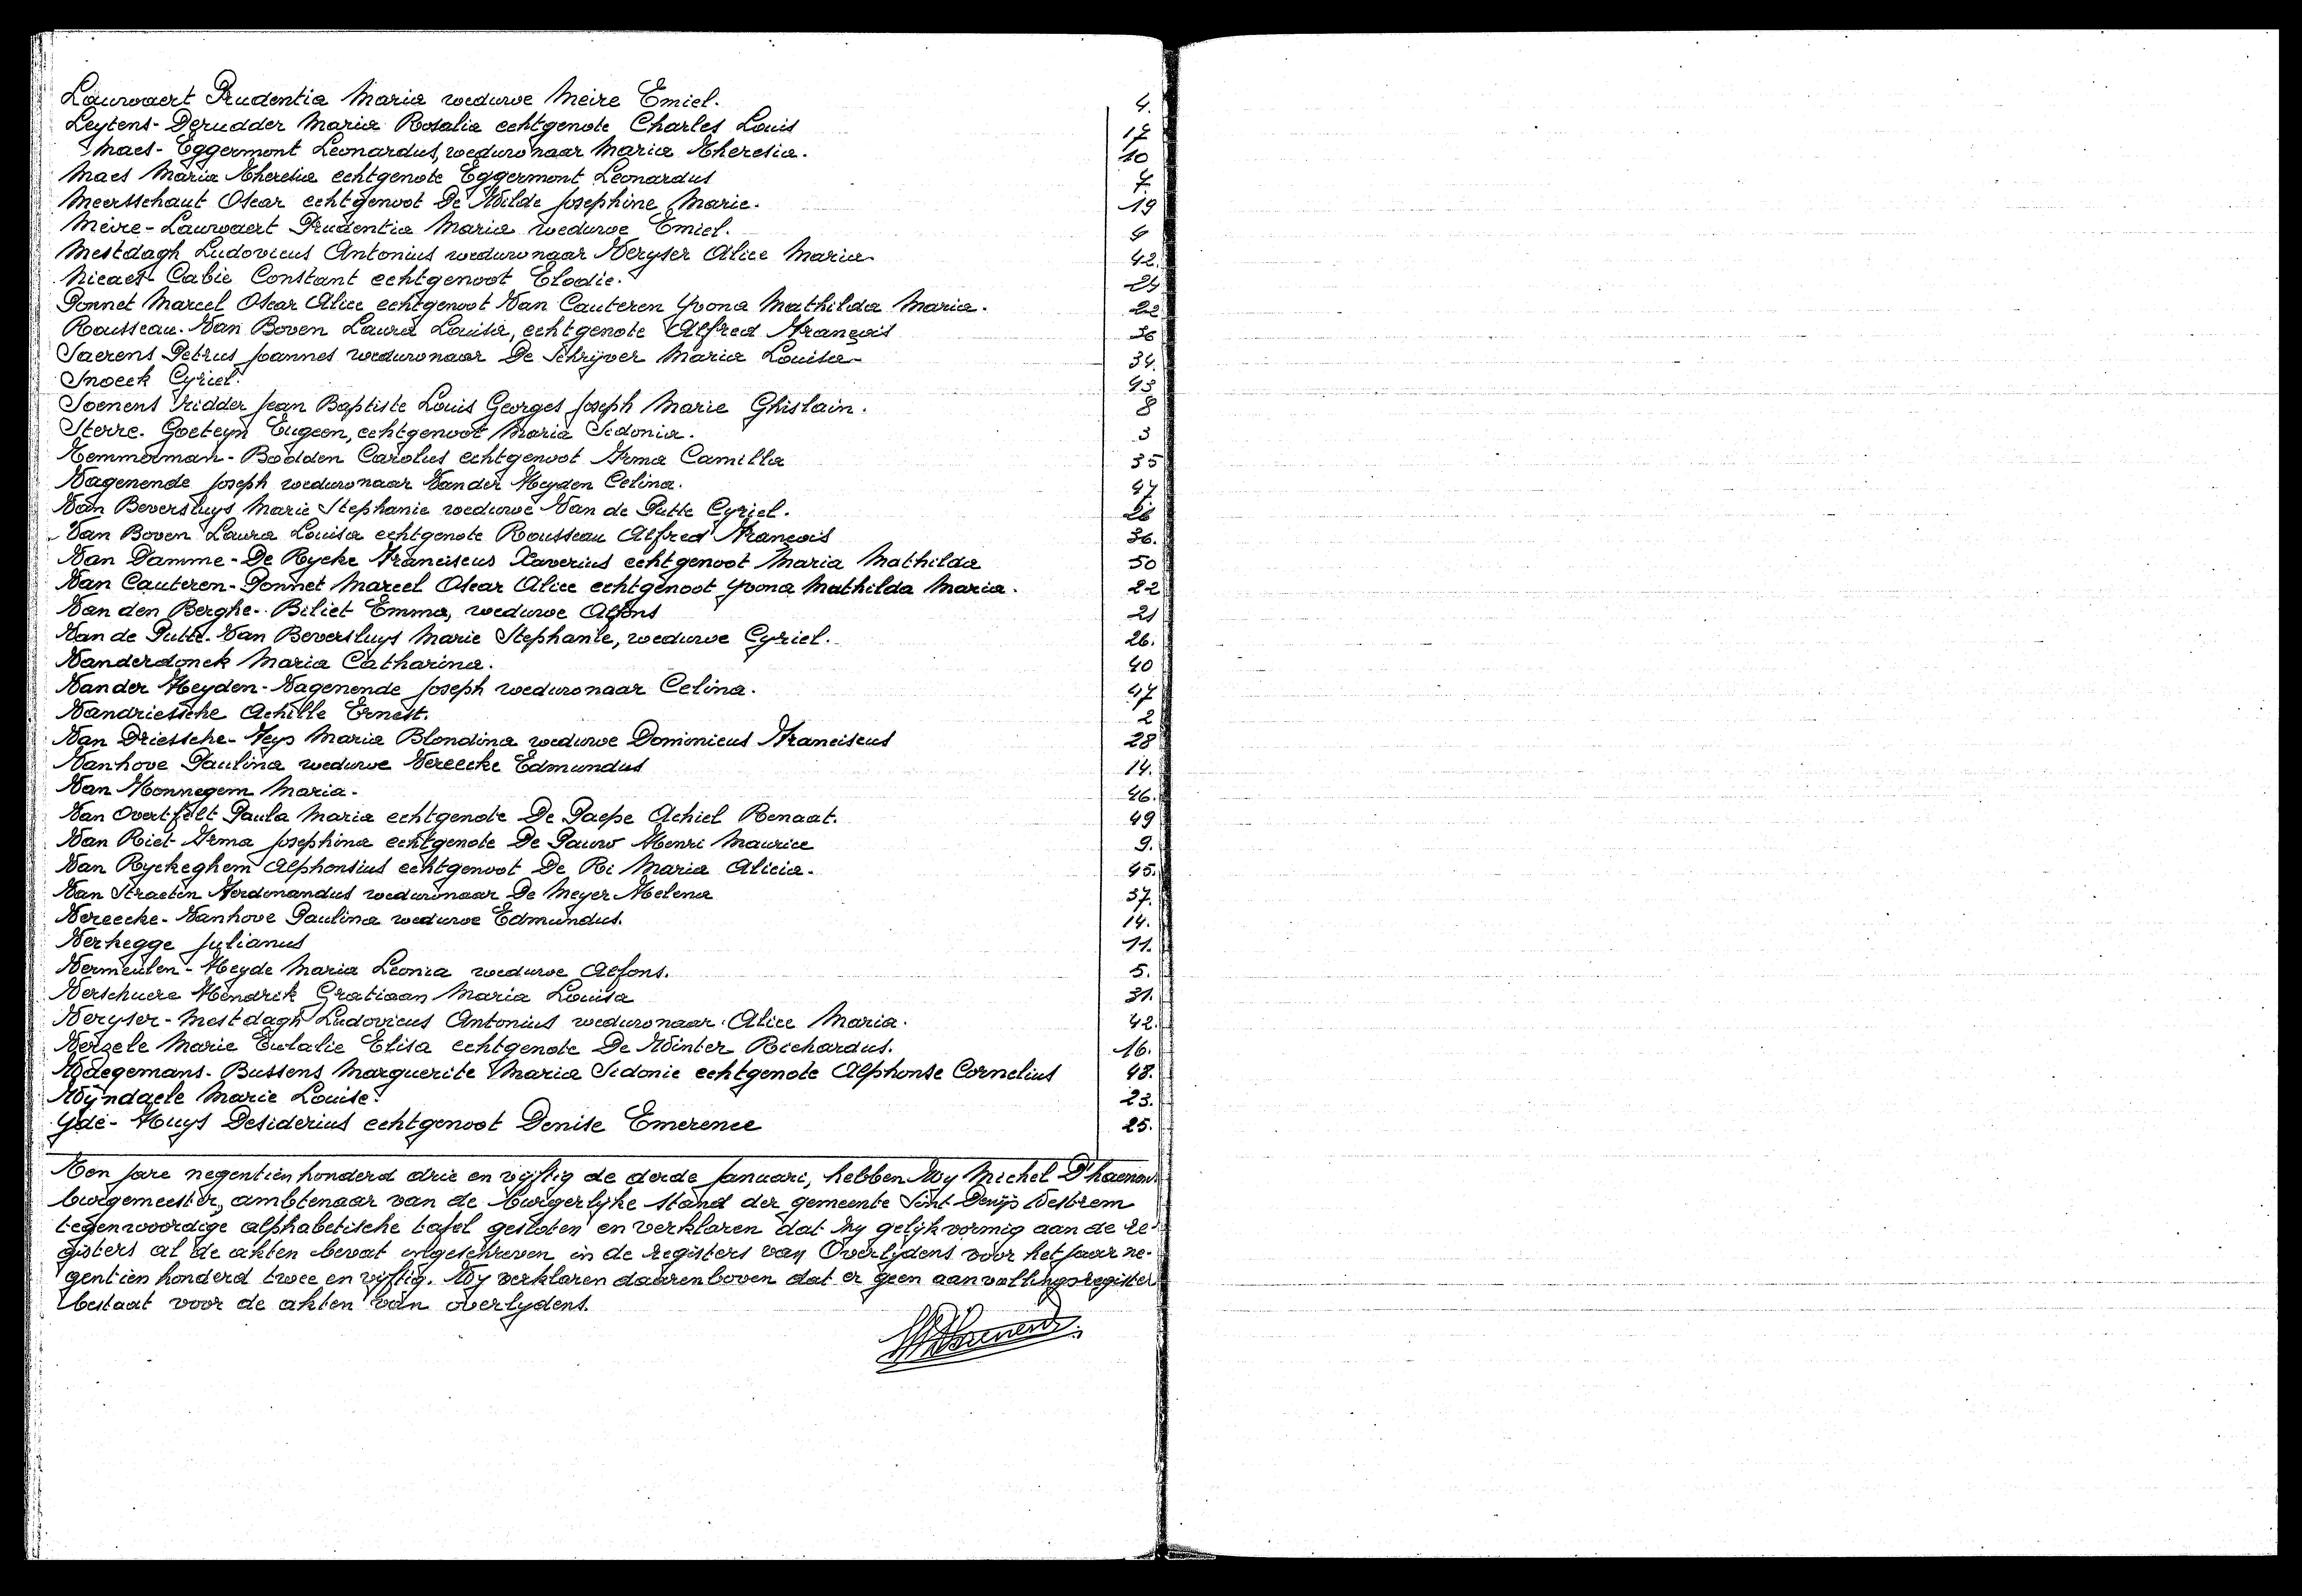 Lauwaert Prudentia Maria weduwe Meire Emiel. 4.
Leytens-Derudder Maria Rosalia echtgenote Charles Louis 17
Maes-Eggermont Leonardus, weduwnaar Maria Theresia. 10
Maes Maria Theresia echtgenote Eggermont Leonardus 7.
Meersschaut Oscar echtgenoot De Wilde Josephine Marie. 19
Meire-Lauwaert Prudentia Maria weduwe Emiel. 4
Mestdagh Ludovicus Antonius weduwnaar Veryser Alice Maria 42.
Nicaes-Cabie Constant echtgenoot Elodie. 24
Ponnet Marcel Oscar Alice echtgenoot Van Cauteren Yvona Mathilda Maria. 22
Rousseau-Van Boven Laura Louisa, echtgenote Alfred François 36
Saerens Petrus Joannes weduwnaar De Schrijver Maria Louisa 34.
Snoeck Cyriel. 43
Soenens ridder Jean Baptiste Louis Georges Joseph Marie Ghislain. 8
Sterre-Goeteyn Eugeen, echtgenoot Maria Sidonia. 3
Temmerman-Bodden Carolus echtgenoot Irma Camilla 35
Vagenende Joseph weduwnaar Vander Heyden Celina. 47
Van Beversluys Marie Stephanie weduwe Van de Putte Cyriel. 26
Van Boven Laura Louisa echtgenote Rousseau Alfred François 36.
Van Damme-De Rycke Franciscus Xaverius echtgenoot Maria Mathilda 50
Van Cauteren-Ponnet Marcel Oscar Alice echtgenoot Yvona Mathilda Maria. 22
Van den Berghe-Biliet Emma, weduwe Alfons 21
Van de Putte-Van Beversluys Marie Stephanie, weduwe Cyriel. 26.
Vanderdonck Maria Catharina. 40
Vander Heyden-Vagenende Joseph weduwnaar Celina. 47
Vandriessche Achille Ernest. 2
Van Driessche-Heys Maria Blondina weduwe Dominicus Franciscus 28
Vanhove Paulina weduwe Vereecke Edmundus 14.
Van Honnegem Maria. 46.
Van Overtfelt Paula Maria echtgenote De Paepe Achiel Renaat. 49
Van Riet Irma Josephina echtgenote De Pauw Henri Maurice 9.
Van Ryckeghem Alphonsius echtgenoot De Ri Maria Alicia. 45.
Van Straeten Ferdinandus weduwnaar De Meyer Helena 37.
Vereecke-Vanhove Paulina weduwe Edmundus. 14.
Verhegge Julianus 11.
Vermeulen-Heyde Maria Leonia weduwe Alfons. 5.
Verschuere Hendrik Gratiaan Maria Louisa 31.
Veryser-Mestdagh Ludovicus Antonius weduwnaar Alice Maria. 42.
Verzele Marie Eulalie Elisa echtgenote De Winter Richardus. 16.
Waegemans-Bussens Marguerite Maria Sidonie echtgenote Alphonse Cornelius 48.
Wyndaele Marie Louise. 23.
Yde-Huys Desiderius echtgenoot Denise Emerence 25.
Ten jare negentien honderd drie en vyftig de derde Januari, hebben Wy Michel D'haenens
burgemeester, ambtenaar van de burgerlyke stand der gemeente Sint-Denijs Westrem
tegenwoordige alphabetische tafel gesloten en verklaren dat zy gelijkvormig aan de re-
gisters al de akten bevat ingeschreven in de registers van Overlydens voor het jaar ne-
gentien honderd twee en vyftig. Wy verklaren daarenboven dat er geen aanvullingsregister
bestaat voor de akten van overlydens.